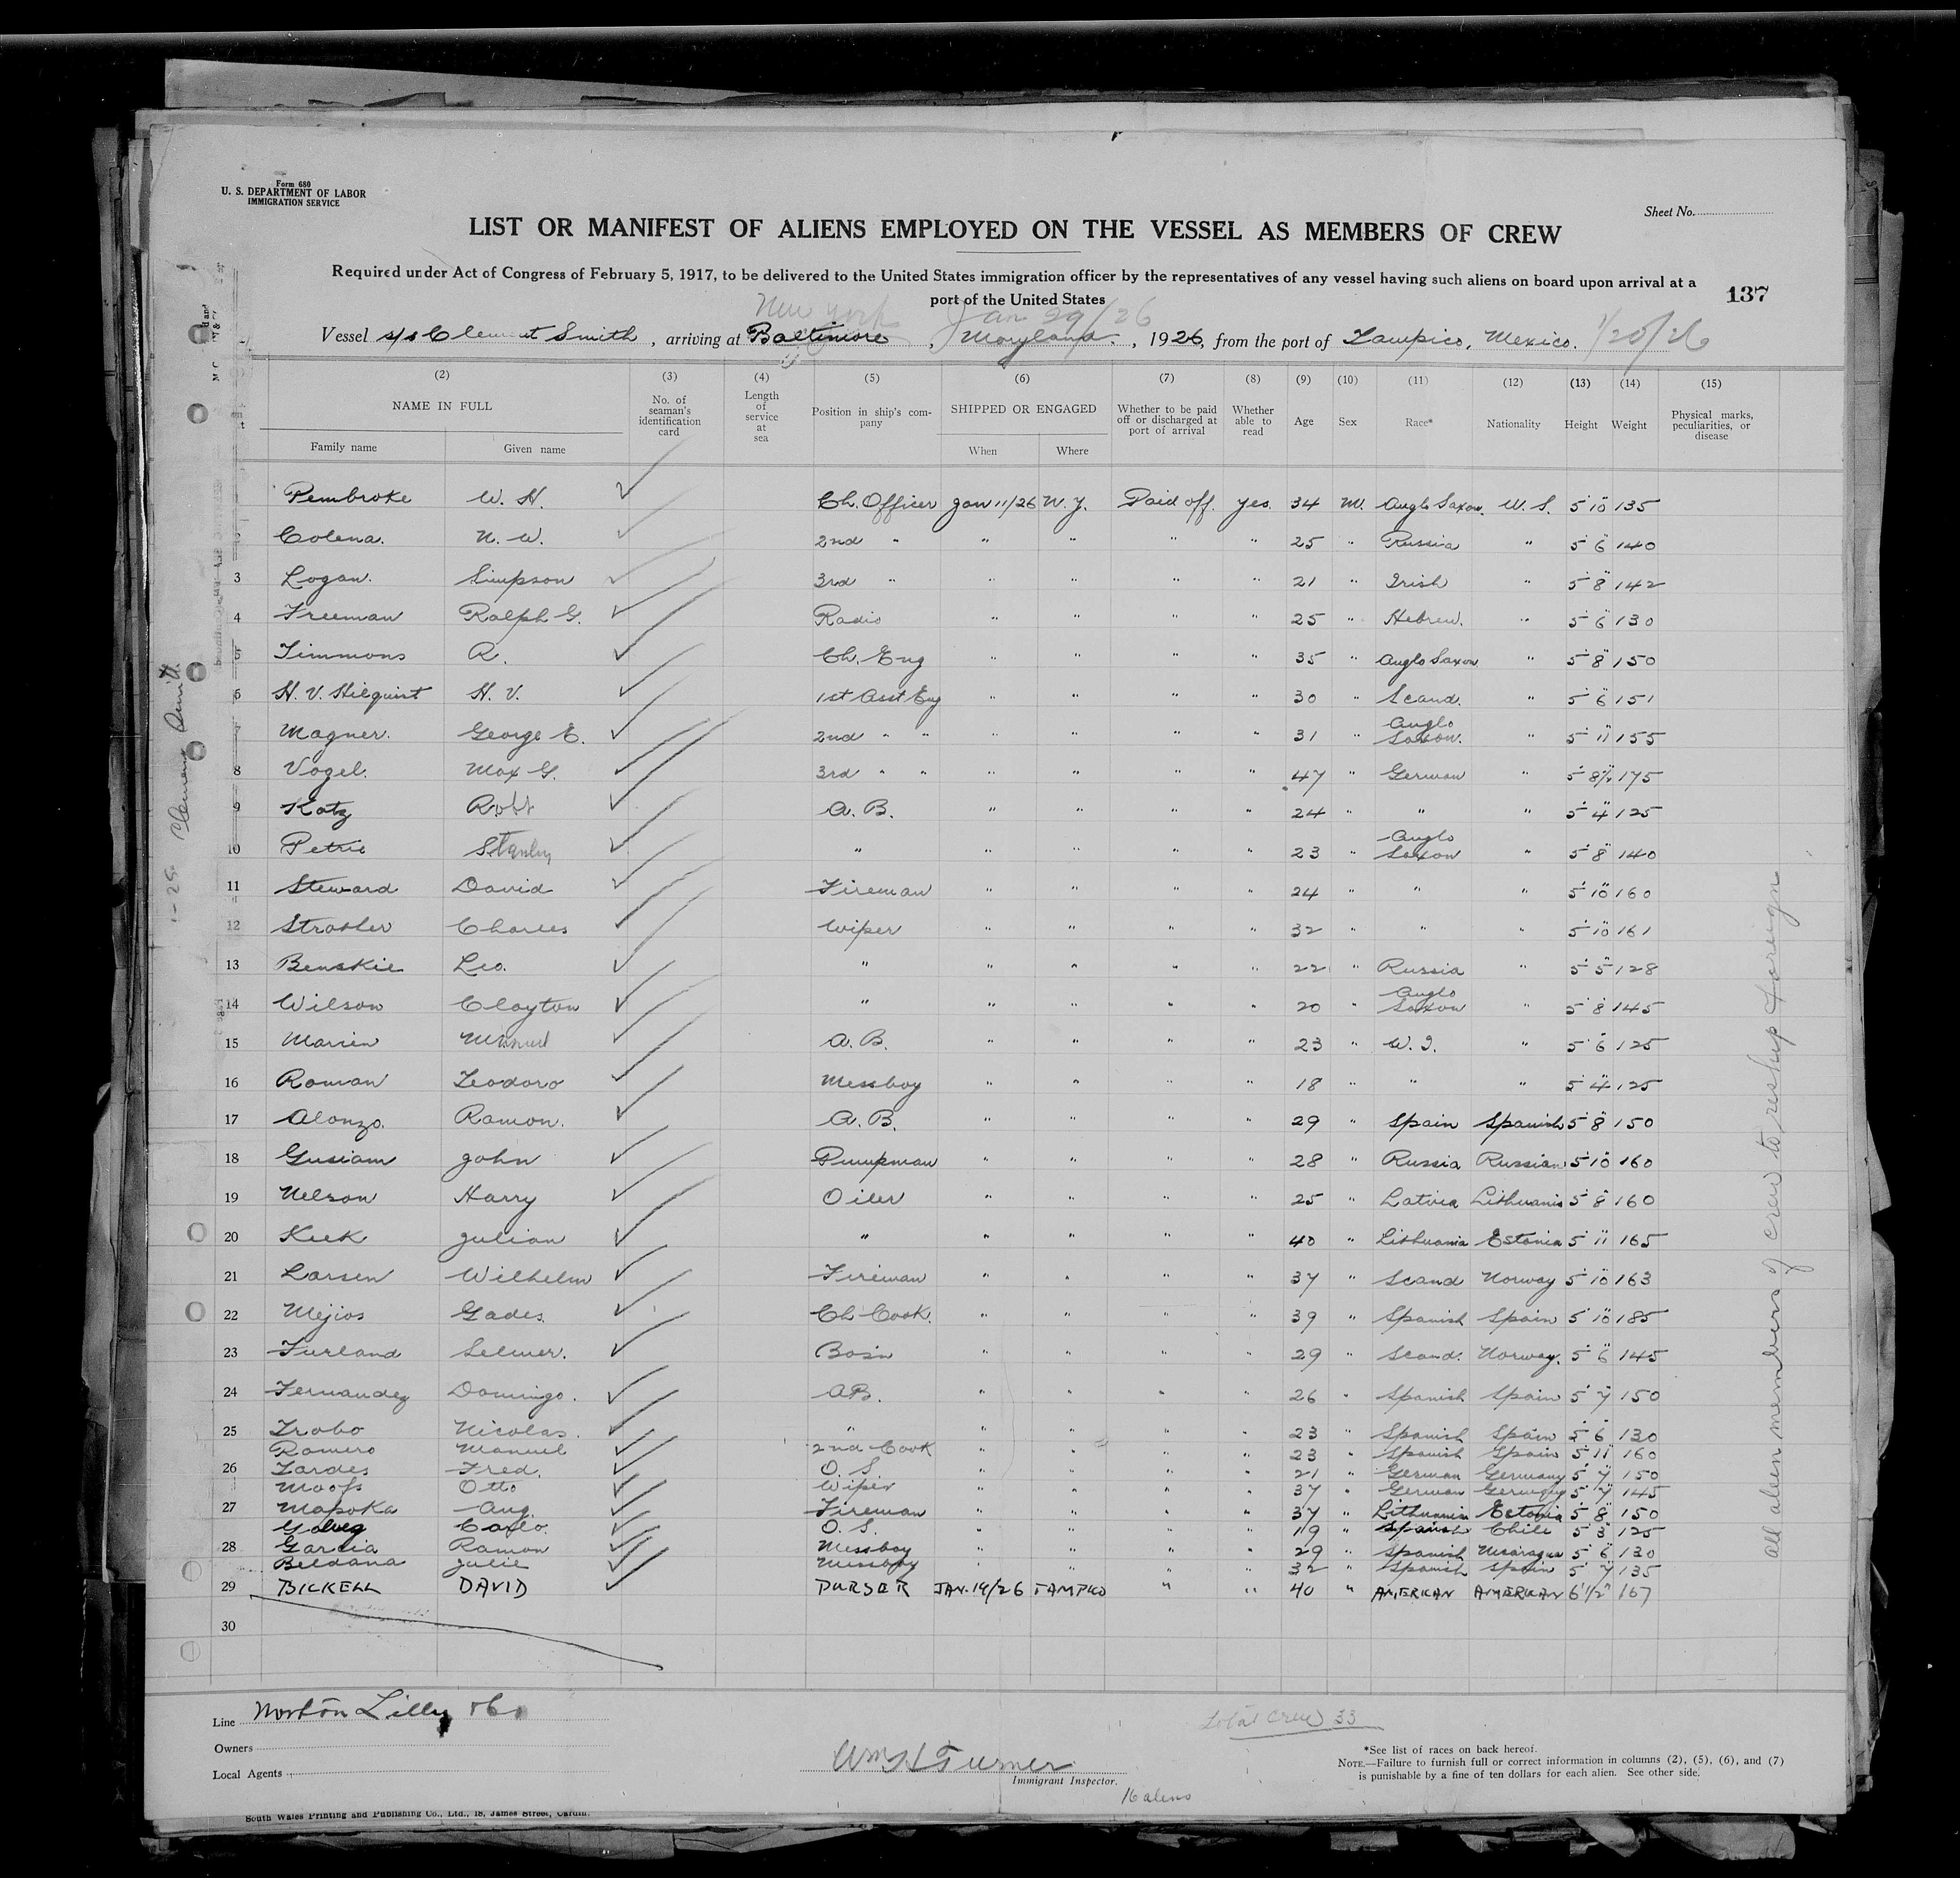 Form 680
U. S. DEPARTMENT OF LABOR
IMMIGRATION SERVICE
Sheet No.
LIST OR MANIFEST OF ALIENS EMPLOYED ON THE VESSEL AS MEMBERS OF CREW
Required under Act of Congress of February 5, 1917, to be delivered to the United States immigration officer by the representatives of any vessel having such aliens on board upon arrival at a
port of the United States
137
New York Jan 29/26
Vessel s/s Clement Smith, arriving at Baltimore, Maryland., 1926, from the port of Tampico, Mexico. 1/20/26
(2) (3) (4) (5) (6) (7) (8) (9) (10) (11) (12) (13) (14) (15)
NAME IN FULL Family name Given name
No. of seaman's identification card
Length of service at sea
Position in ship's company
SHIPPED OR ENGAGED When Where
Whether to be paid off or discharged at port of arrival
Whether able to read
Age Sex Race* Nationality Height Weight
Physical marks, peculiarities, or disease
Pembroke W. H. Ch. Officer Jan 11/26 N. Y. Paid off. yes. 34 M. Anglo Saxon. U. S. 5' 10" 135
Colena. N. W. 2nd " " " " " 25 " Russia " 5' 6" 140
3 Logan. Simpson 3rd " " " " " 21 " Irish " 5' 8" 142
4 Freeman Ralph G. Radio " " " " 25 " Hebrew. " 5' 6" 130
5 Timmons R. Ch. Eng " " " " 35 " Anglo Saxon " 5' 8" 150
6 H. V. Hilquist H. V. 1st Asst Eng " " " " 30 " Scand. " 5' 6" 151
7 Magner. George E. 2nd " " " " " " 31 " Anglo Saxon. " 5' 11" 155
8 Vogel. Max G. 3rd " " " " " " 47 " German " 5' 8½" 175
9 Katz Robt A. B. " " " " 24 " " " 5' 4" 125
10 Petrie Stanley " " " " " 23 " Anglo Saxon " 5' 8" 140
11 Steward David Fireman " " " " 24 " " " 5' 10" 160
12 Charles Wiper " " " " 32 " " " 5' 10" 161
13 Benskie Leo. " " " " " 22 " Russia " 5' 5" 128
14 Wilson Clayton " " " " " 20 " Anglo Saxon " 5' 8" 145
15 Marien Manuel A. B. " " " " 23 " W. I. " 5' 6" 125
16 Roman Teodoro Messboy " " " " 18 " " " 5' 4" 125
17 Alonzo. Ramon. A. B. " " " " 29 " Spain Spanish 5' 8" 150
18 Gusiam John Pumpman " " " " 28 " Russia Russian 5' 10" 160
19 Nelson Harry Oiler " " " " 25 " Latvia Lithuania 5' 8" 160
20 Keek Julian " " " " " 40 " Lithuania Estonia 5' 11" 165
21 Larsen Wilhelm Fireman " " " " 37 " Scand Norway 5' 10" 163
22 Mejios Gades. Ch Cook. " " " " 39 " Spanish Spain 5' 10" 185
23 Furland Selmer. Bosin " " " " 29 " Scand. Norway. 5' 6" 145
24 Fernandez Domingo. AB. " " " " 26 " Spanish Spain 5' 7" 150
25 Trobo Nicolas. " " " " " 23 " Spanish Spain 5' 6" 130
Romero Manuel 2nd Cook " " " " 23 " Spanish Spain 5' 11" 160
26 Fred. O. S " " " " 21 " German Germany 5' 7" 150
Otto Wiper " " " " 37 " German Germany 5' 7" 145
27 Mapoka Aug. Fireman " " " " 37 " Lithuania Estonia 5' 8" 150
Carlo. O. S. " " " " 19 " Spanish Chile 5' 3" 125
28 Garcia Ramon Messboy " " " " 29 " Spanish Nicaragua 5' 6" 130
Beldana Julie Messboy " " " " 32 " Spanish Spain 5' 7" 135
29 BICKELL DAVID PURSER JAN. 19/26 TAMPICO " " 40 " AMERICAN AMERICAN 6' 1/2" 167
30
Clement Smith
All alien members of crew to reship foreign
Line Norton Lilly & Co
Owners
Local Agents
Wm H Turner
Immigrant Inspector.
16 aliens
Total crew 33
*See list of races on back hereof.
NOTE.—Failure to furnish full or correct information in columns (2), (5), (6), and (7)
is punishable by a fine of ten dollars for each alien. See other side.
South Wales Printing and Publishing Co., Ltd., 18, James Street, Cardiff.